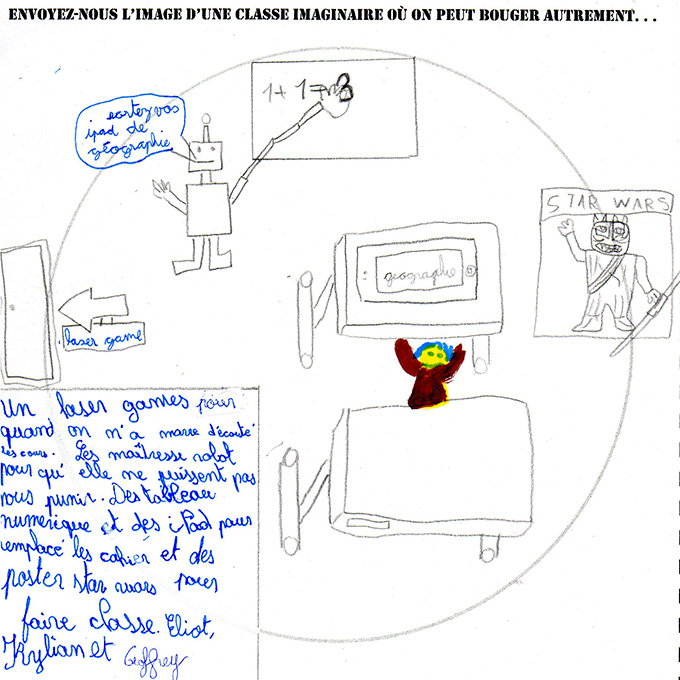 ENVOYEZ-NOUS L'IMAGE D'UNE CLASSE IMAGINAIRE OÙ ON PEUT BOUGER AUTREMENT...
1+1=3
sortez vos
ipad de
géographie.
STAR WARS
géographie
laser game
Un laser games pour
quand on n'a marre d'écouté
les cours. Les maîtresse robot
pour qu'elle ne puissent pas
nous punir. Des tableau
numérique et des iPad pour
remplacé les cahier et des
poster star wars pour
faire classe. Eliot,
Kylian et Geoffrey